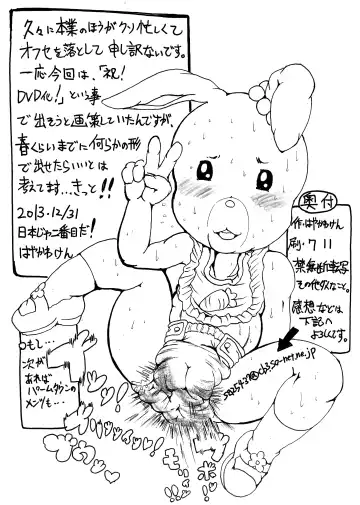 久々に本業のほうがクソ忙しくて
オフセを落として申し訳ないです。
一応今回は、「祝!
DVD化!」という事
で出そうと画策していたんですが、
春くらいまでに何らかの形
で出せたらいいとは
考えてます…きっと!!
2013.12/31
日本じゃ二番目だ!
はやかわけん
奥付
作・はやかわけん
刷・711
禁無断転写
その他イロイロなこと。
感想・などは
下記へ
よろしくです。
もし…
次が
あれば
パームタウンの
メンツも…